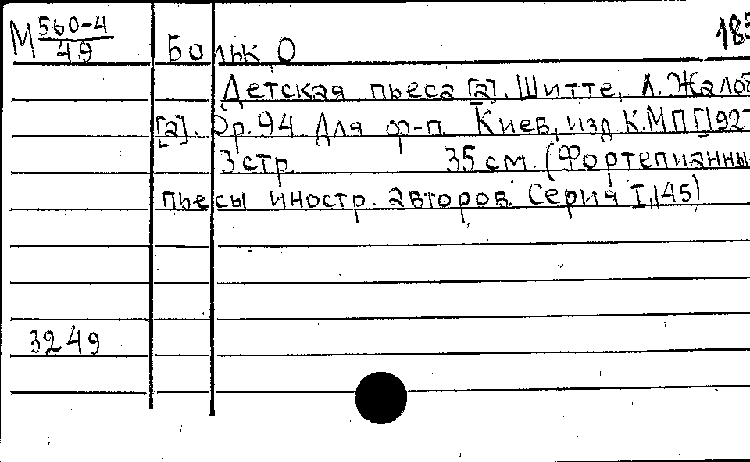 М 560-4
49
185
Больк, О
Детская пьеса [a]. Шитте, Л. Жалоб
[a]. Op. 94. Для ф-п. Киев, изд. К.М.П. [192
3 стр. 35 см. (Фортепианны
пьесы иностр. авторов. Серия I, 145)
3249